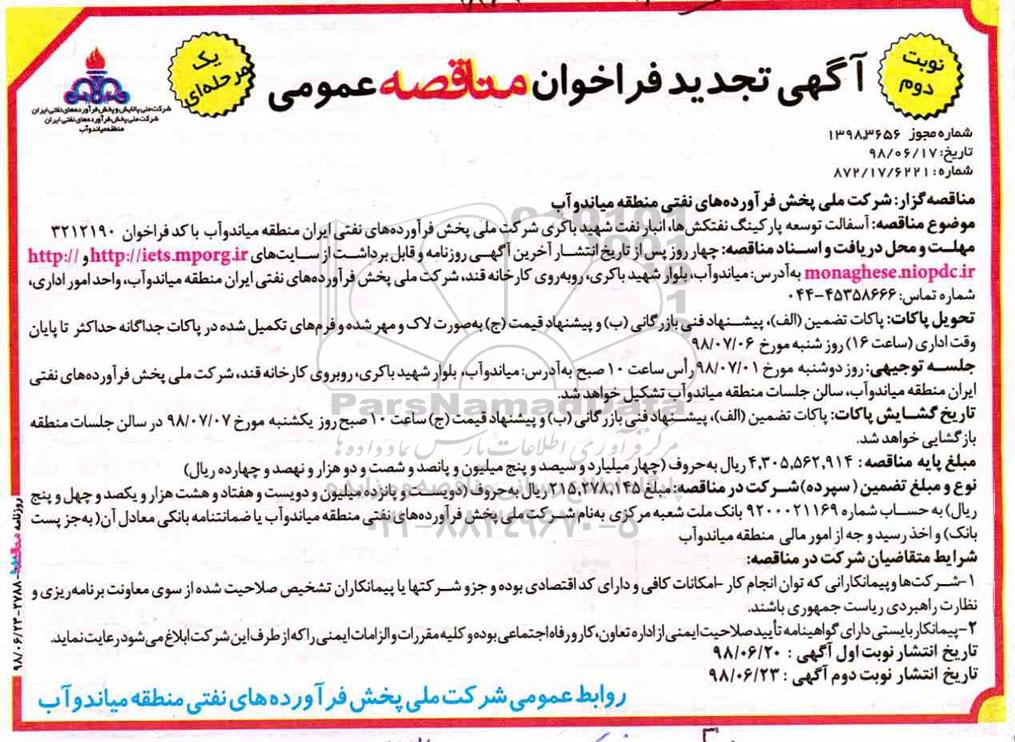 نوبت دوم
آگهی تجدید فراخوان مناقصه عمومی
یک مرحله‌ای
شرکت ملی پالایش و پخش فرآورده‌های نفتی ایران
شرکت ملی پخش فرآورده‌های نفتی ایران
منطقه میاندوآب
شماره مجوز ۱۳۹۸.۳۶۵۶
تاریخ: ۹۸/۰۶/۱۷
شماره: ۸۷۲/۱۷/۶۲۲۱
مناقصه‌گزار: شرکت ملی پخش فرآورده‌های نفتی منطقه میاندوآب
موضوع مناقصه: آسفالت توسعه پارکینگ نفتکش‌ها، انبار نفت شهید باکری شرکت ملی پخش فرآورده‌های نفتی ایران منطقه میاندوآب با کد فراخوان ۳۲۱۲۱۹۰
مهلت و محل دریافت و اسناد مناقصه: چهار روز پس از تاریخ انتشار آخرین آگهی روزنامه و قابل برداشت از سایت‌های http://iets.mporg.ir و http://
monaghese.niopdc.ir به‌آدرس: میاندوآب، بلوار شهید باکری، روبه‌روی کارخانه قند، شرکت ملی پخش فرآورده‌های نفتی ایران منطقه میاندوآب، واحد امور اداری،
شماره تماس: ۴۵۳۵۸۶۶۶-۰۴۴
تحویل پاکات: پاکات تضمین (الف)، پیشنهاد فنی بازرگانی (ب) و پیشنهاد قیمت (ج) به‌صورت لاک و مهر شده و فرم‌های تکمیل شده در پاکات جداگانه حداکثر تا پایان
وقت اداری (ساعت ۱۶) روز شنبه مورخ ۹۸/۰۷/۰۶
جلسه توجیهی: روز دوشنبه مورخ ۹۸/۰۷/۰۱ رأس ساعت ۱۰ صبح به‌آدرس: میاندوآب، بلوار شهید باکری، روبروی کارخانه قند، شرکت ملی پخش فرآورده‌های نفتی
ایران منطقه میاندوآب، سالن جلسات منطقه میاندوآب تشکیل خواهد شد.
تاریخ گشایش پاکات: پاکات تضمین (الف)، پیشنهاد فنی بازرگانی (ب) و پیشنهاد قیمت (ج) ساعت ۱۰ صبح روز یکشنبه مورخ ۹۸/۰۷/۰۷ در سالن جلسات منطقه
بازگشایی خواهد شد.
مبلغ پایه مناقصه: ۴,۳۰۵,۵۶۲,۹۱۴ ریال به‌حروف (چهار میلیارد و سیصد و پنج میلیون و پانصد و شصت و دو هزار و نهصد و چهارده ریال)
نوع و مبلغ تضمین (سپرده) شرکت در مناقصه: مبلغ ۲۱۵,۲۷۸,۱۴۵ ریال به‌حروف (دویست و پانزده میلیون و دویست و هفتاد و هشت هزار و یکصد و چهل و پنج
ریال) به حساب شماره ۹۲۰۰۰۲۱۱۶۹ بانک ملت شعبه مرکزی به‌نام شرکت ملی پخش فرآورده‌های نفتی منطقه میاندوآب یا ضمانتنامه بانکی معادل آن( به‌جز پست
بانک) و اخذ رسید وجه از امور مالی منطقه میاندوآب
شرایط متقاضیان شرکت در مناقصه:
۱-شرکت‌ها و پیمانکارانی که توان انجام کار -امکانات کافی و دارای کد اقتصادی بوده و جزو شرکتها یا پیمانکاران تشخیص صلاحیت شده از سوی معاونت برنامه‌ریزی و
نظارت راهبردی ریاست جمهوری باشند.
۲-پیمانکار بایستی دارای گواهینامه تأیید صلاحیت ایمنی از اداره تعاون، کار و رفاه اجتماعی بوده و کلیه مقررات و الزامات ایمنی را که از طرف این شرکت ابلاغ می‌شود رعایت نماید.
تاریخ انتشار نوبت اول آگهی : ۹۸/۰۶/۲۰
تاریخ انتشار نوبت دوم آگهی : ۹۸/۰۶/۲۳
روابط عمومی شرکت ملی پخش فرآورده‌های نفتی منطقه میاندوآب
روزنامه مناقصه ۲۷۸۸-۹۸/۰۶/۲۳
ParsNamadData
مرکز فرآوری اطلاعات پارس نماد داده‌ها
پایگاه اطلاع رسانی مناقصه و مزایده
۰۲۱-۸۸۳۴۹۶۷۰-۵